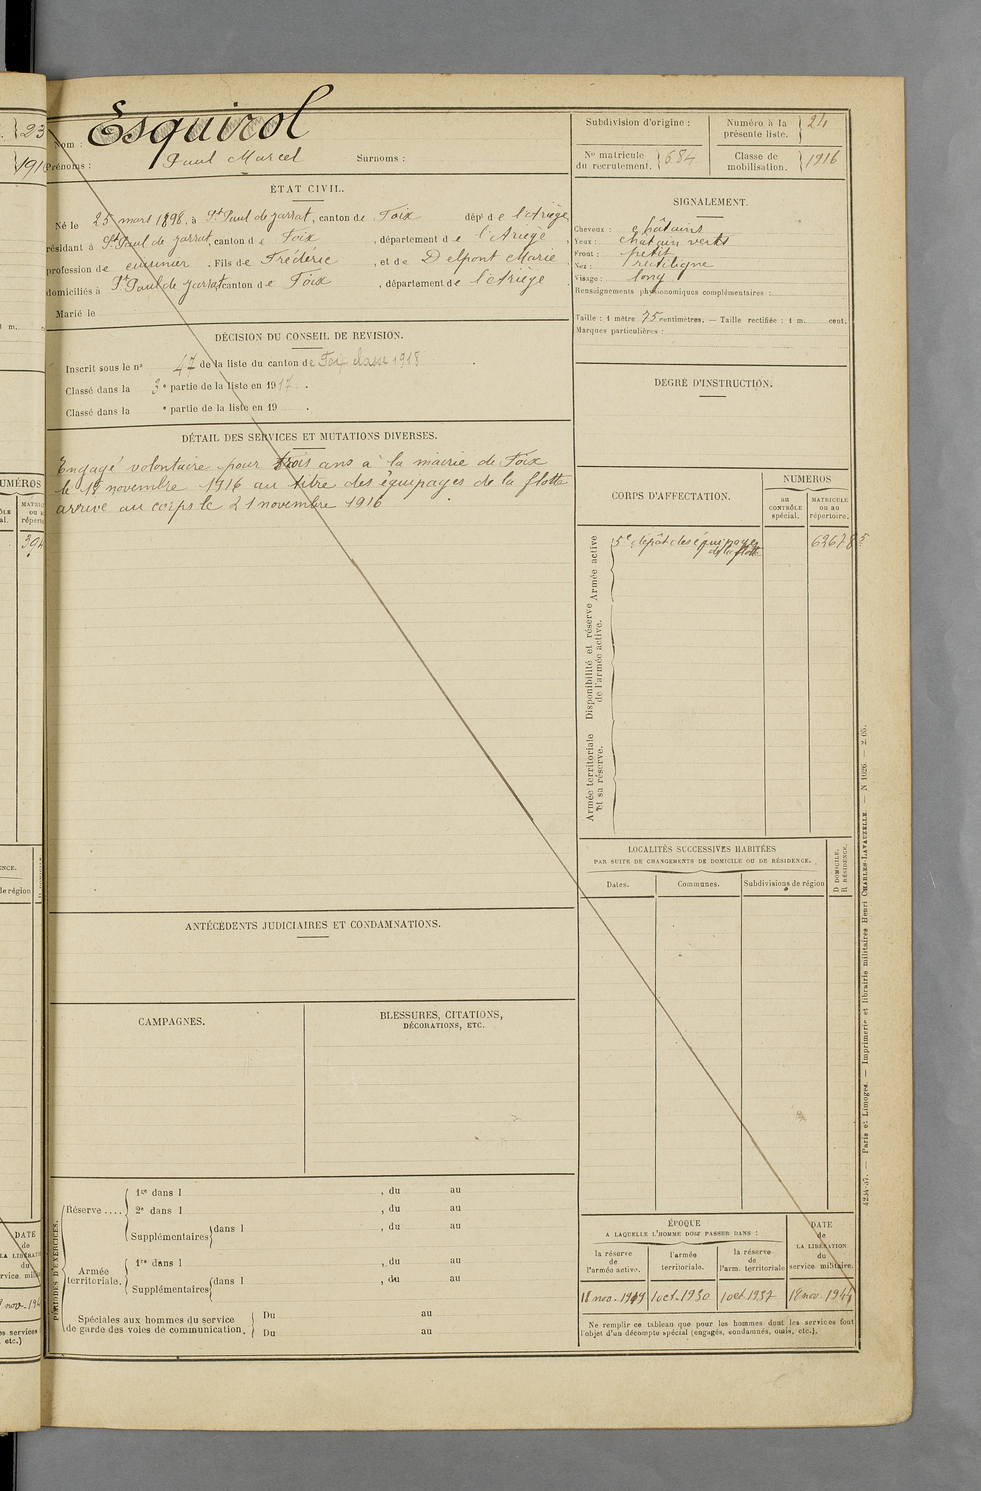 Nom : Esquirol
Prénoms : Paul Marcel Surnoms :
ÉTAT CIVIL.
Né le 25 mars 1898, à St Paul de Jarrat, canton de Foix dépt de l'Ariège,
résidant à St Paul de Jarrat, canton de Foix, département de l'Ariège,
profession de cuisinier. Fils de Frédéric, et de Delpont Marie
domiciliés à St Paul de Jarrat canton de Foix, département de l'Ariège
Marié le
DÉCISION DU CONSEIL DE REVISION.
Inscrit sous le n° 47 de la liste du canton de Foix classe 1918.
Classé dans la 3e partie de la liste en 1917.
Classé dans la e partie de la liste en 19 .
DÉTAIL DES SERVICES ET MUTATIONS DIVERSES.
Engagé volontaire pour trois ans à la mairie de Foix
le novembre 1916 au titre des équipages de la flotte
arrivé au corps le 21 novembre 1916
ANTÉCÉDENTS JUDICIAIRES ET CONDAMNATIONS.
CAMPAGNES.
BLESSURES, CITATIONS,
DÉCORATIONS, ETC.
PÉRIODES D'EXERCICES.
Réserve ....
1re dans l , du au
2e dans l , du au
Supplémentaires dans l , du au
Armée territoriale.
1re dans l , du au
Supplémentaires dans l , du au
Spéciales aux hommes du service
de garde des voies de communication.
Du au
Du au
Subdivision d'origine :
Numéro à la présente liste. 24
No matricule du recrutement. 684
Classe de mobilisation. 1916
SIGNALEMENT.
Cheveux : châtains
Yeux : châtain verts
Front : petit
Nez : rectiligne
Visage : long
Renseignements physionomiques complémentaires :
Taille : 1 mètre 75 centimètres. — Taille rectifiée : 1 m. cent.
Marques particulières :
DEGRÉ D'INSTRUCTION.
CORPS D'AFFECTATION.
NUMÉROS
au CONTRÔLE spécial.
MATRICULE ou au répertoire.
Armée active
5e dépôt des équipages
de la flotte
62678 5
Disponibilité et réserve
de l'armée active.
Armée territoriale
et sa réserve.
LOCALITÉS SUCCESSIVES HABITÉES
PAR SUITE DE CHANGEMENTS DE DOMICILE OU DE RÉSIDENCE.
D DOMICILE.
R RÉSIDENCE.
Dates. Communes. Subdivisions de région
ÉPOQUE
A LAQUELLE L'HOMME DOIT PASSER DANS :
DATE de LA LIBÉRATION du service militaire.
la réserve de l'armée active.
l'armée territoriale.
la réserve de l'arm. territoriale
18 nov. 1919 1 oct. 1930 1 oct. 1937 18 nov. 1944
Ne remplir ce tableau que pour les hommes dont les services font
l'objet d'un décompte spécial (engagés, condamnés, omis, etc.).
4234-37. — Paris et Limoges. — Imprimerie et librairie militaires Henri CHARLES-LAVAUZELLE. — N 1026. — 2 05.